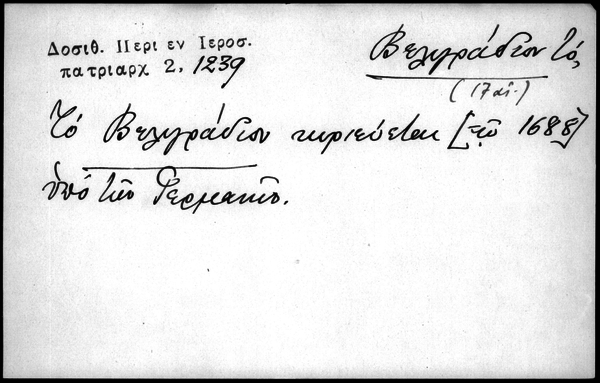 Δοσιθ. Περι εν Ιεροσ.
πατριαρχ 2, 1239
Βελιγράδιον τό,
(17 αἰ.)
Τό Βελιγράδιον κυριεύεται [τῷ 1688]
ὑπό τῶν Γερμανῶν.